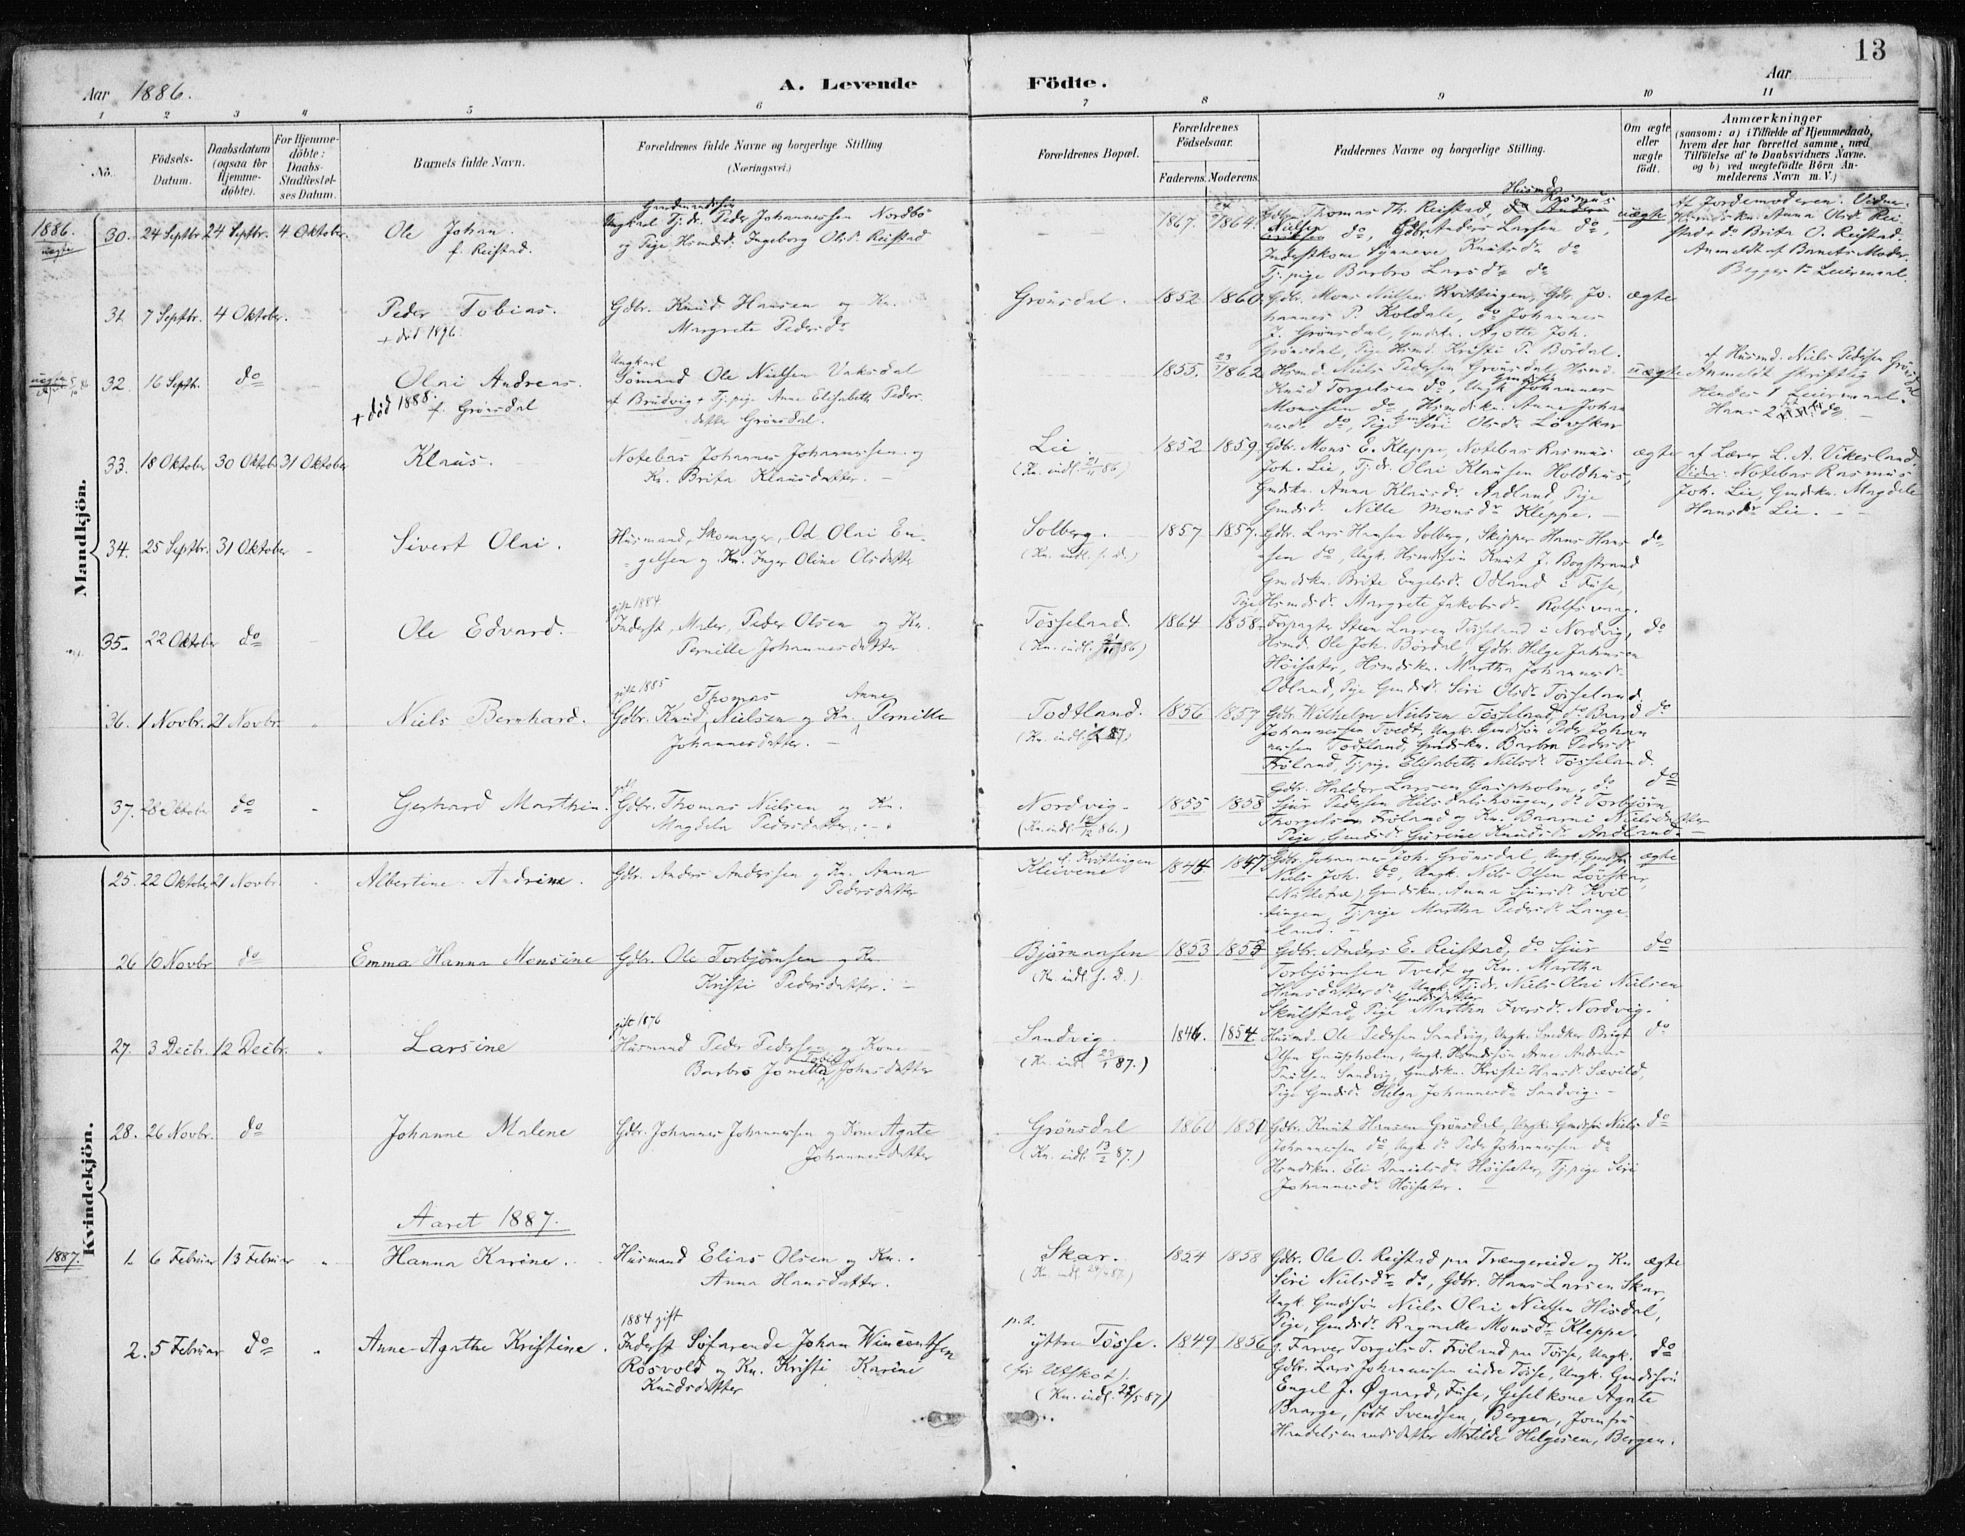 13
Aar 1886. A. Levende Födte. Aar
1 2 3 4 5 6 7 8 9 10 11
No. Födsels-Datum. Daabsdatum (ogsaa for Hjemme-döbte). For Hjemme-döbte: Daabs-Stadfæstel-ses Datum. Barnets fulde Navn. Forældrenes fulde Navne og borgerlige Stilling (Næringsvei.) Forældrenes Bopæl. Forældrenes Födselsaar. Faderens. Moderens. Faddernes Navne og borgerlige Stilling. Om ægte eller uægte födt. Anmærkninger (saasom: a) i Tilfælde af Hjemmedaab, hvem der har forrettet samme, med Tilföielse af to Daabsvidners Navne. og b) ved uægtefödte Börn An-melderens Navn m. V.)
Mandkjön.
1886. uægte
30. 24 Septbr. 24 Septbr. 4 Oktober. Ole Johan. f. Reistad.
Gaardmandssøn
Ungkarl Tj. dr. Peder Johannessen Nordbö
og Pige Hsmdsd. Ingeborg Olsdr. Reistad
1867. 1864.
Gdbr. Thomas Th. Reistad, Husmd. Rasmus
Nielsen do, Gdbr. Anders Larsen do,
Inderstkone Synneve Knutsdr. do
Tj. pige Barbro Larsdr. do
uægte
af Jordemoderen. Vidner
Husmdskn. Anna Olsdr. Rei-
stad + do Brita O. Reistad.
Anmeldt af Barnets Moder.
Begges 1ste Leiermaal.
31. 7 Septbr. 4 Oktober. Peder Tobias. + död 1896.
Gdbr. Knud Hansen og Kn.
Margrete Pedersdr.
Grönsdal. 1852 1860.
Gdbr. Mons Nielsen Kvittingen, Gdbr. Jo-
hannes P. Koldale, do Johannes
J. Grönsdal, Gmdskn. Agotte Joh.
Grönsdal, Pige Hsmd. Kristi P. Bördal.
ægte
32. 16 Septbr. do Olai Andreas. + död 1888. f. Grönsdal
Ungkarl
Sömand Ole Nielsen Vaksdal
af Brudvig + Tj. pige Anne Elisabeth Peders-
datter Grönsdal.
1855. 23 1862
Hsmd. Niels Pedersen Grönsdal, Hsmd.
Knud Torgelsen do, Ungk. Gmdssøn Johannes
Monssen do, Hsmdskn. Anne Johan-
nesdr. do, Pige Gmdsdr. Siri Olsdr. Lövskar
uægte
af Husmd. Niels Pedersen Grönsdal
Anmeldt skriftlig
Hendes 1 Leiermaal.
Hans 2det do
33. 18 Oktober 30 Oktober 31 Oktober Klaus.
Notebas Johannes Johannessen og
Kn. Brita Klausdatter.
Lie (Kn. indl. 21/11 86) 1852 1859.
Gdbr. Mons E. Kleppe, Notebas Rasmus
Joh. Lie, Tj. dr. Olai Klausen Holdhus,
Gmdskn. Anna Klausdr. Aadland, Pige
Gmdsdr. Nille Monsdr. Kleppe.
ægte
af Lærer L. A. Vikesland
Vidner: Notebas Rasmus
Joh. Lie, Gmdskn. Magdele
Hansdr. Lie.
34. 25 Septbr. 31 Oktober Sivert Olai.
Husmand, Skomager, Od Olai En-
gelsen og Kn. Inger Oline Olsdatter
Solberg. (Kn. indl. s. d.) 1857 1857.
Gdbr. Lars Hansen Solberg, Skipper Hans Hans-
sen do, Ungk. Hsmdssön Knut J. Bogstrand
Gmdskn. Brite Engelsdr. Odland i Fuse,
Pige Hsmdsdr. Margrete Jakobsdr. Rolfsvaag.
do
35. 22 Oktober do Ole Edvard.
gift 1884
Inderst, Maler, Peder Olsen og Kn.
Pernille Johannesdatter
Tösseland. (Kn. indl. 21/11 86) 1864 1858.
Forpagter Steen Larsen Tösseland i Nordvig,
Hsmd. Ole Joh. Bördal, Gdbr. Helge Johnsen
Höisæter, Hsmdskn. Martha Johannesdr.
Odland, Pige Gmdsdr. Siri Olsdr. Tösseland
do
36. 1 Novbr. 21 Novbr. Niels Bernhard.
gift 1885
Gdbr. Knud Thomas Nielsen og Kn. Anne Pernille
Johannesdatter.
Todtland. 1856 1857
Gdbr. Wilhelm Nielsen Tösseland, do Baard
Johannessen Tvedt, Ungk. Gmdssön Peder Johan-
nessen Todtland, Gmdskn. Barbra Pedersdr.
Fröland, Tj. pige Elisabeth Nielsdr. Tösseland.
do
37. 28 Oktober do Gerhard Marthin.
Gdbr. Thomas Nielsen og Kn.
Magdela Pedersdatter.
Nordvig. (Kn. indl. 12/12 86.) 1855 1858
Gdbr. Haldor Larsen Gripsholm, do
Sjur Pedersen Hilsdalshougen, do Torbjörn
Thorgelsen Fröland og Kn. Brarni Nielsdatter
Pige, Gmdsdr. Gurine Knudsdr. Aadland.
do
Kvindekjön.
25. 22 Oktober 21 Novbr. Albertine Andrine.
Gdbr. Anders Andersen og Kn. Anna
Pedersdatter
Kleivene f. Kvittingen 1844 1847
Gdbr. Johannes Joh. Grönsdal, Ungk. Gmdssön
Niels Joh. do, Ungk. Nils Olsen Lövskar,
Gmdskn. Anna Sjursdr. Kvit-
tingen, Tj. pige Martha Pedersdr. Lange-
land.
ægte
26 10 Novbr. do Emma Hanna Monsine
Gdbr. Ole Torbjørnsen og Kn.
Kristi Pedersdatter.
Bjørnaasen (Kn. indl. s. D.) 1853 1853
Gdbr. Anders E. Reistad, do Sjur
Torbjørnsen Tvedt og Kn. Martha
Hansdatter do, Ungk. Tj. dr. Niels Olai Nielsen
Skulstad, Pige Gmdsdatter Martha Iversdr. Nordvig.
do
27. 3 Decbr. 12 Decbr. Larsine
gift 1876
Husmand Peder Pedersen og Kone
Barbro Jonetta Johnsdatter
Sandvig. (Kn. indl. 23/1 87.) 1846. 1854.
Husmd. Ole Pedersen Sandvig, Ungk. Snedker Brigt
Olsen Gaupholm, Ungk. Hsmdssön Arne Andreas
Paulsen Sandvig, Gmdskn. Kristi Hansdr. Sævild,
Pige Gmdsdr. Helga Johannesdr. Sandvig.
do
28. 26 Novbr. do Johanne Malene
Gdbr. Johannes Johannessen og Kone Agate
Johannesdatter
Grönsdal (Kn. indl. 13/2 87.) 1860 1851
Gdbr. Knut Hansen Grönsdal, Ungk. Gmdssön Niels
Johannessen do, Ungk. do Peder Johannessen do
Hsmdskn. Eli Danielsdr. Höisæter, Tj. pige Siri
Johannesdr. Höisæter.
do
Aaret 1887.
1887. 1. 6 Februar 13 Februar Hanna Karine.
Husmand Elias Olsen og Kn.
Anna Hansdatter.
Skar. 1854 1858
Gdbr. Ole O. Reistad paa Trængereide og Kn.
Siri Nielsdr. do, Gdbr. Hans Larsen Skar,
Ungk. Gmdssøn Niels Olai Nielsen Hisdal,
Pige, Gmdsdr. Ragnille Monsdr. Kleppe.
ægte
2. 5 Februar do Anne Agathe Kristine.
1884 gift
Inderst Søfarende Johan Wincentsen
Rosvold og Kn. Kristi Karine
Knudsdatter
p. t. ytre Tösse. (Kn. indl. 29/5 87) 1849 1856
g. Farver Torgils T. Fröland paa Tösse, Ungk.
Gdbr. Lars Johannessen indre Tösse, Ungk. Gmdssön
Engel J. Øgaard, Fuse, Geselkone Agate
Baarge, født Svendsen, Bergen, Jomfru
Handelsmandsdatter Matilde Helgesen, Bergen.
do